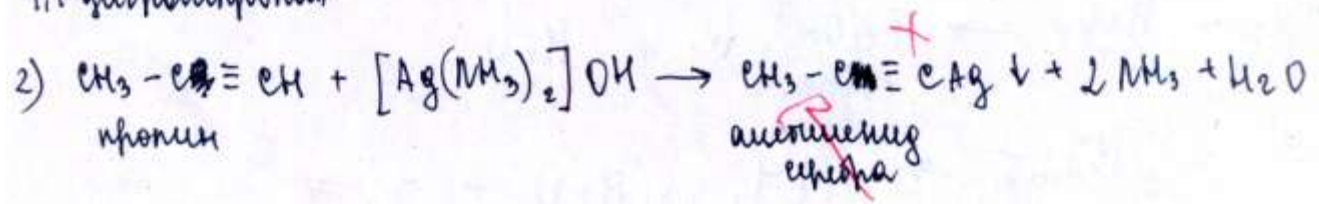 2) CH₃ – C ≡ CH + [Ag(NH₃)₂]OH → CH₃ – C ≡ CAg ↓ + 2 NH₃ + H₂O
пропин ацетиленид
серебра